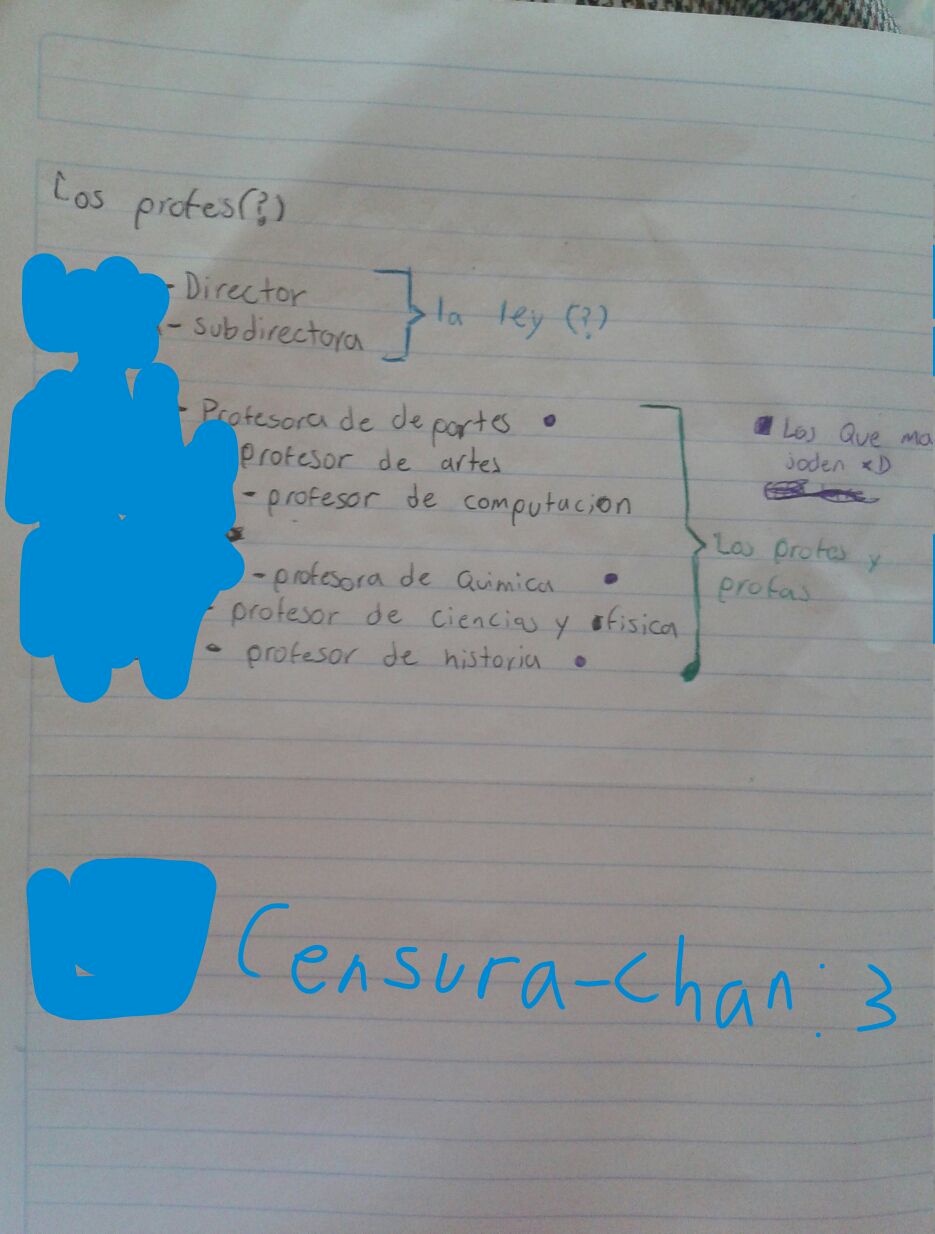 Los profes(?)
- Director
- subdirectora
la ley (?)
- Profesora de deportes •
profesor de artes
- profesor de computacion
- profesora de Quimica •
- profesor de ciencias y fisica
- profesor de historia •
Los profes y
profas
Los Que ma
joden xD
Censura-chan :3